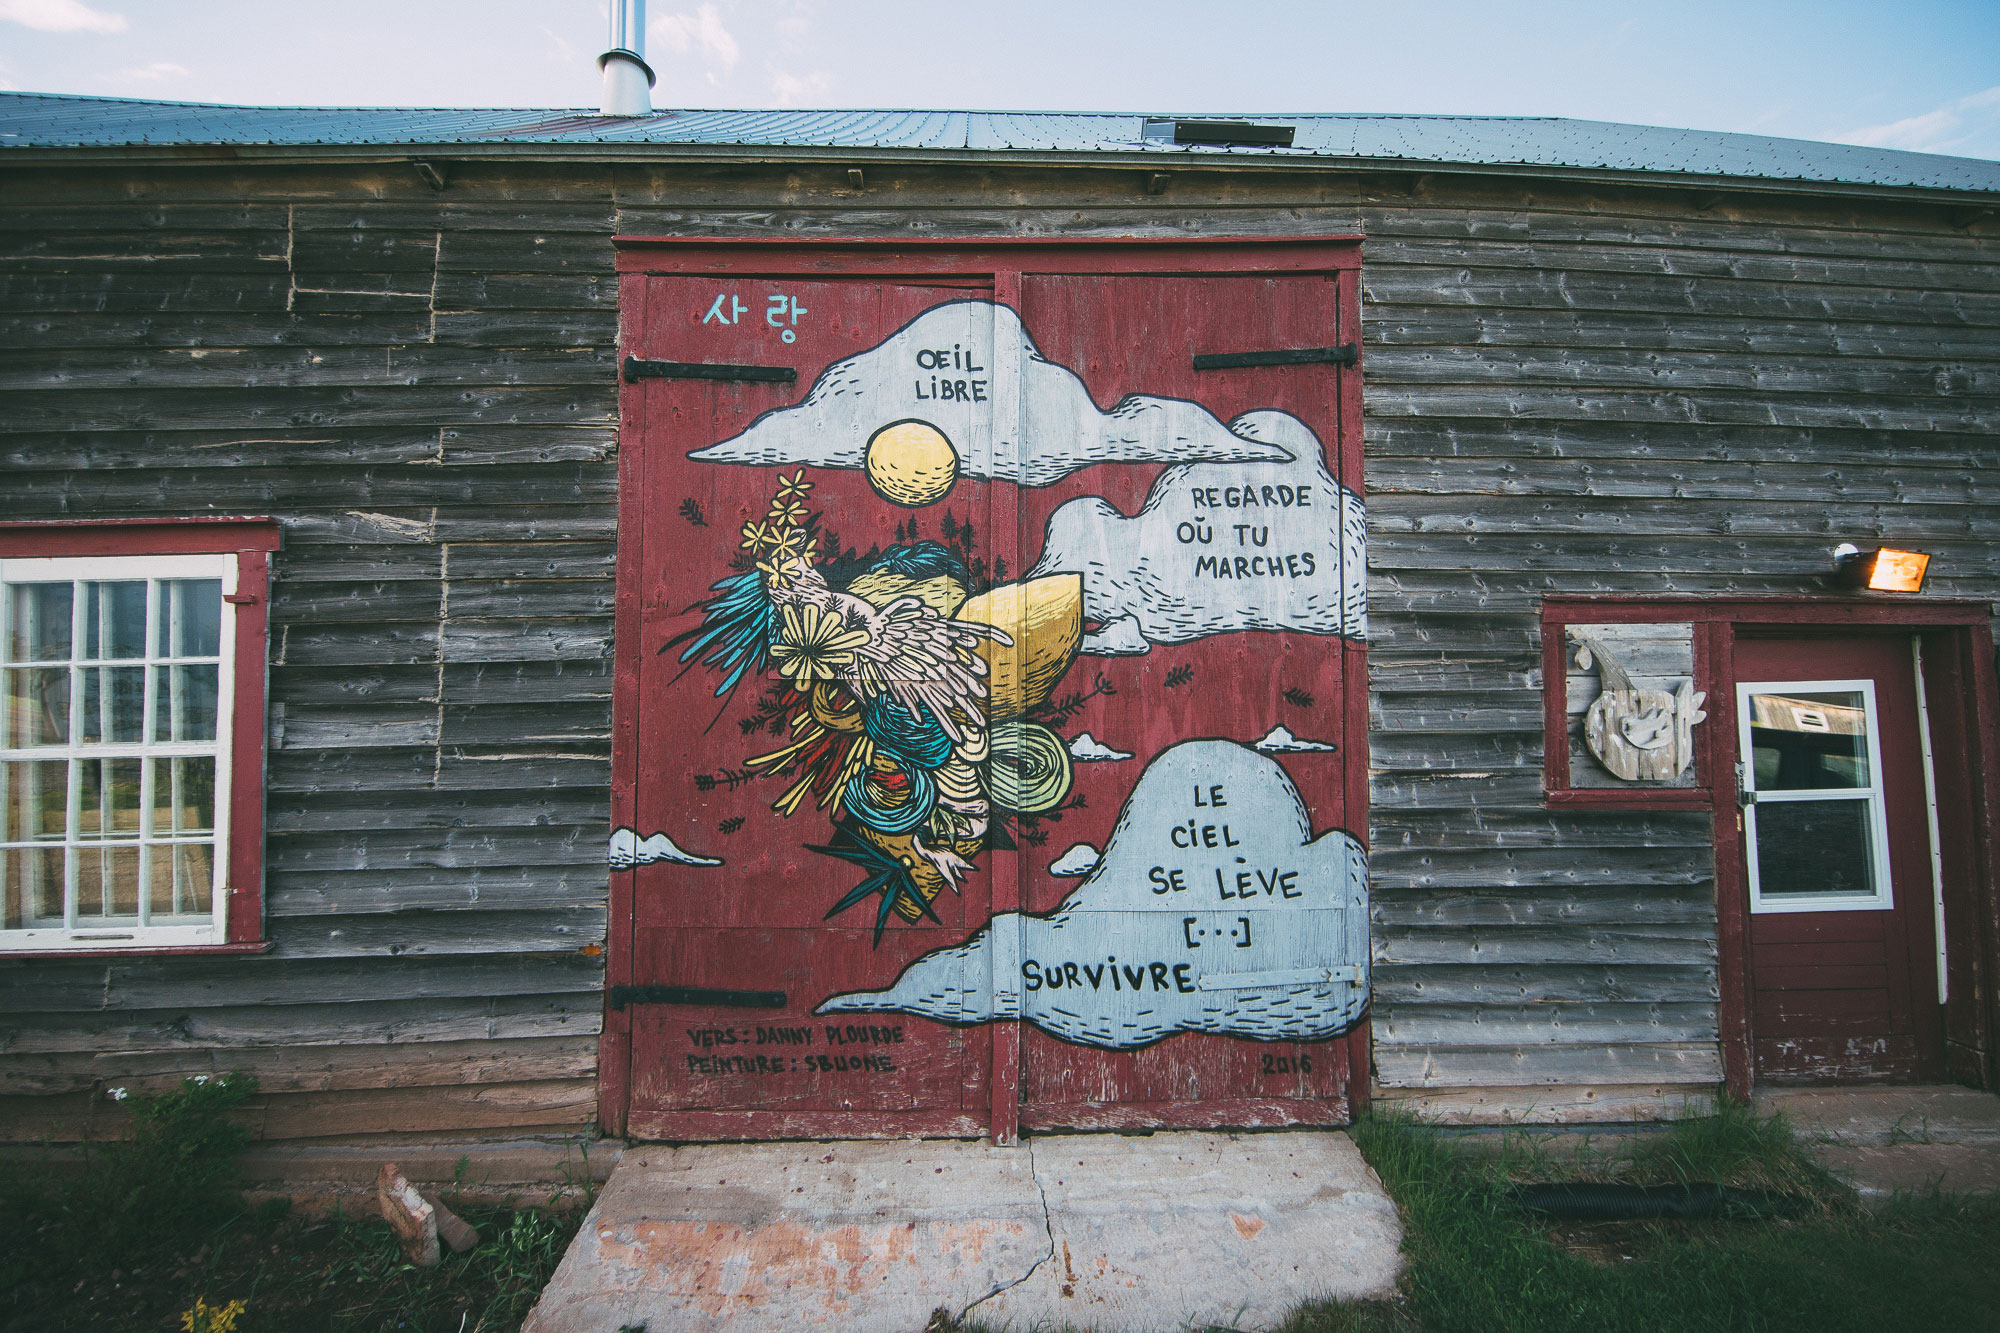 사랑
OEIL
LIBRE
REGARDE
OÙ TU
MARCHES
LE
CIEL
SE LÈVE
[...]
SURVIVRE
VERS : DANNY PLOURDE
PEINTURE : SBUONE
2016